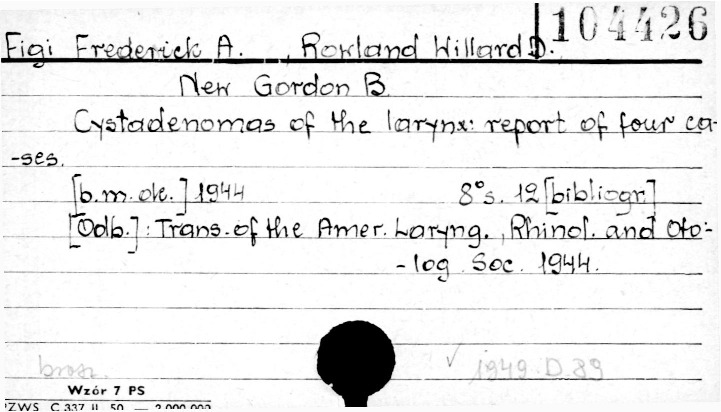 104426
Figi Frederick A. , Rowland Willard D.
New Gordon B
Cystadenomas of the larynx: report of four ca-
-ses.
[b.m.dr.] 1944 8°s. 12 [bibliogr.]
[Odb.]: Trans. of the Amer. Laryng., Rhinol. and Oto-
-log. Soc. 1944.
brosz. √ 1949 D 89
Wzór 7 PS
ZWS C 337 II 50 — 2 000 000